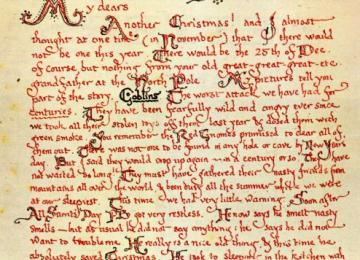 My dears
Another Christmas! and I almost
thought at one time (in November) that there would
not be one this year. There would be the 25th of Dec.
of course, but nothing from your old great-great-great-etc.
grandfather at the North Pole. My pictures tell you
part of the story. Goblins. The worst attack we have had for
centuries. They have been fearfully wild and angry ever since
we took all their stolen toys off them last year & dosed them with
green smoke. You remember the Red Gnomes promised to clear all of
them out. There was not one to be found in any hole or cave by New Year's
day. But I said they would crop up again — in a century or so. They have
not waited so long! They must have gathered their nasty friends from
mountains all over the world, & been busy all the summer while we were
at our sleepiest. This time we had very little warning. Soon after
All Saints' Day PB got very restless. He now says he smelt nasty
smells — but as usual he did not say anything: he says he did not
want to trouble me. He really is a nice old thing, & this time he
absolutely saved Christmas. He took to sleeping in the kitchen with